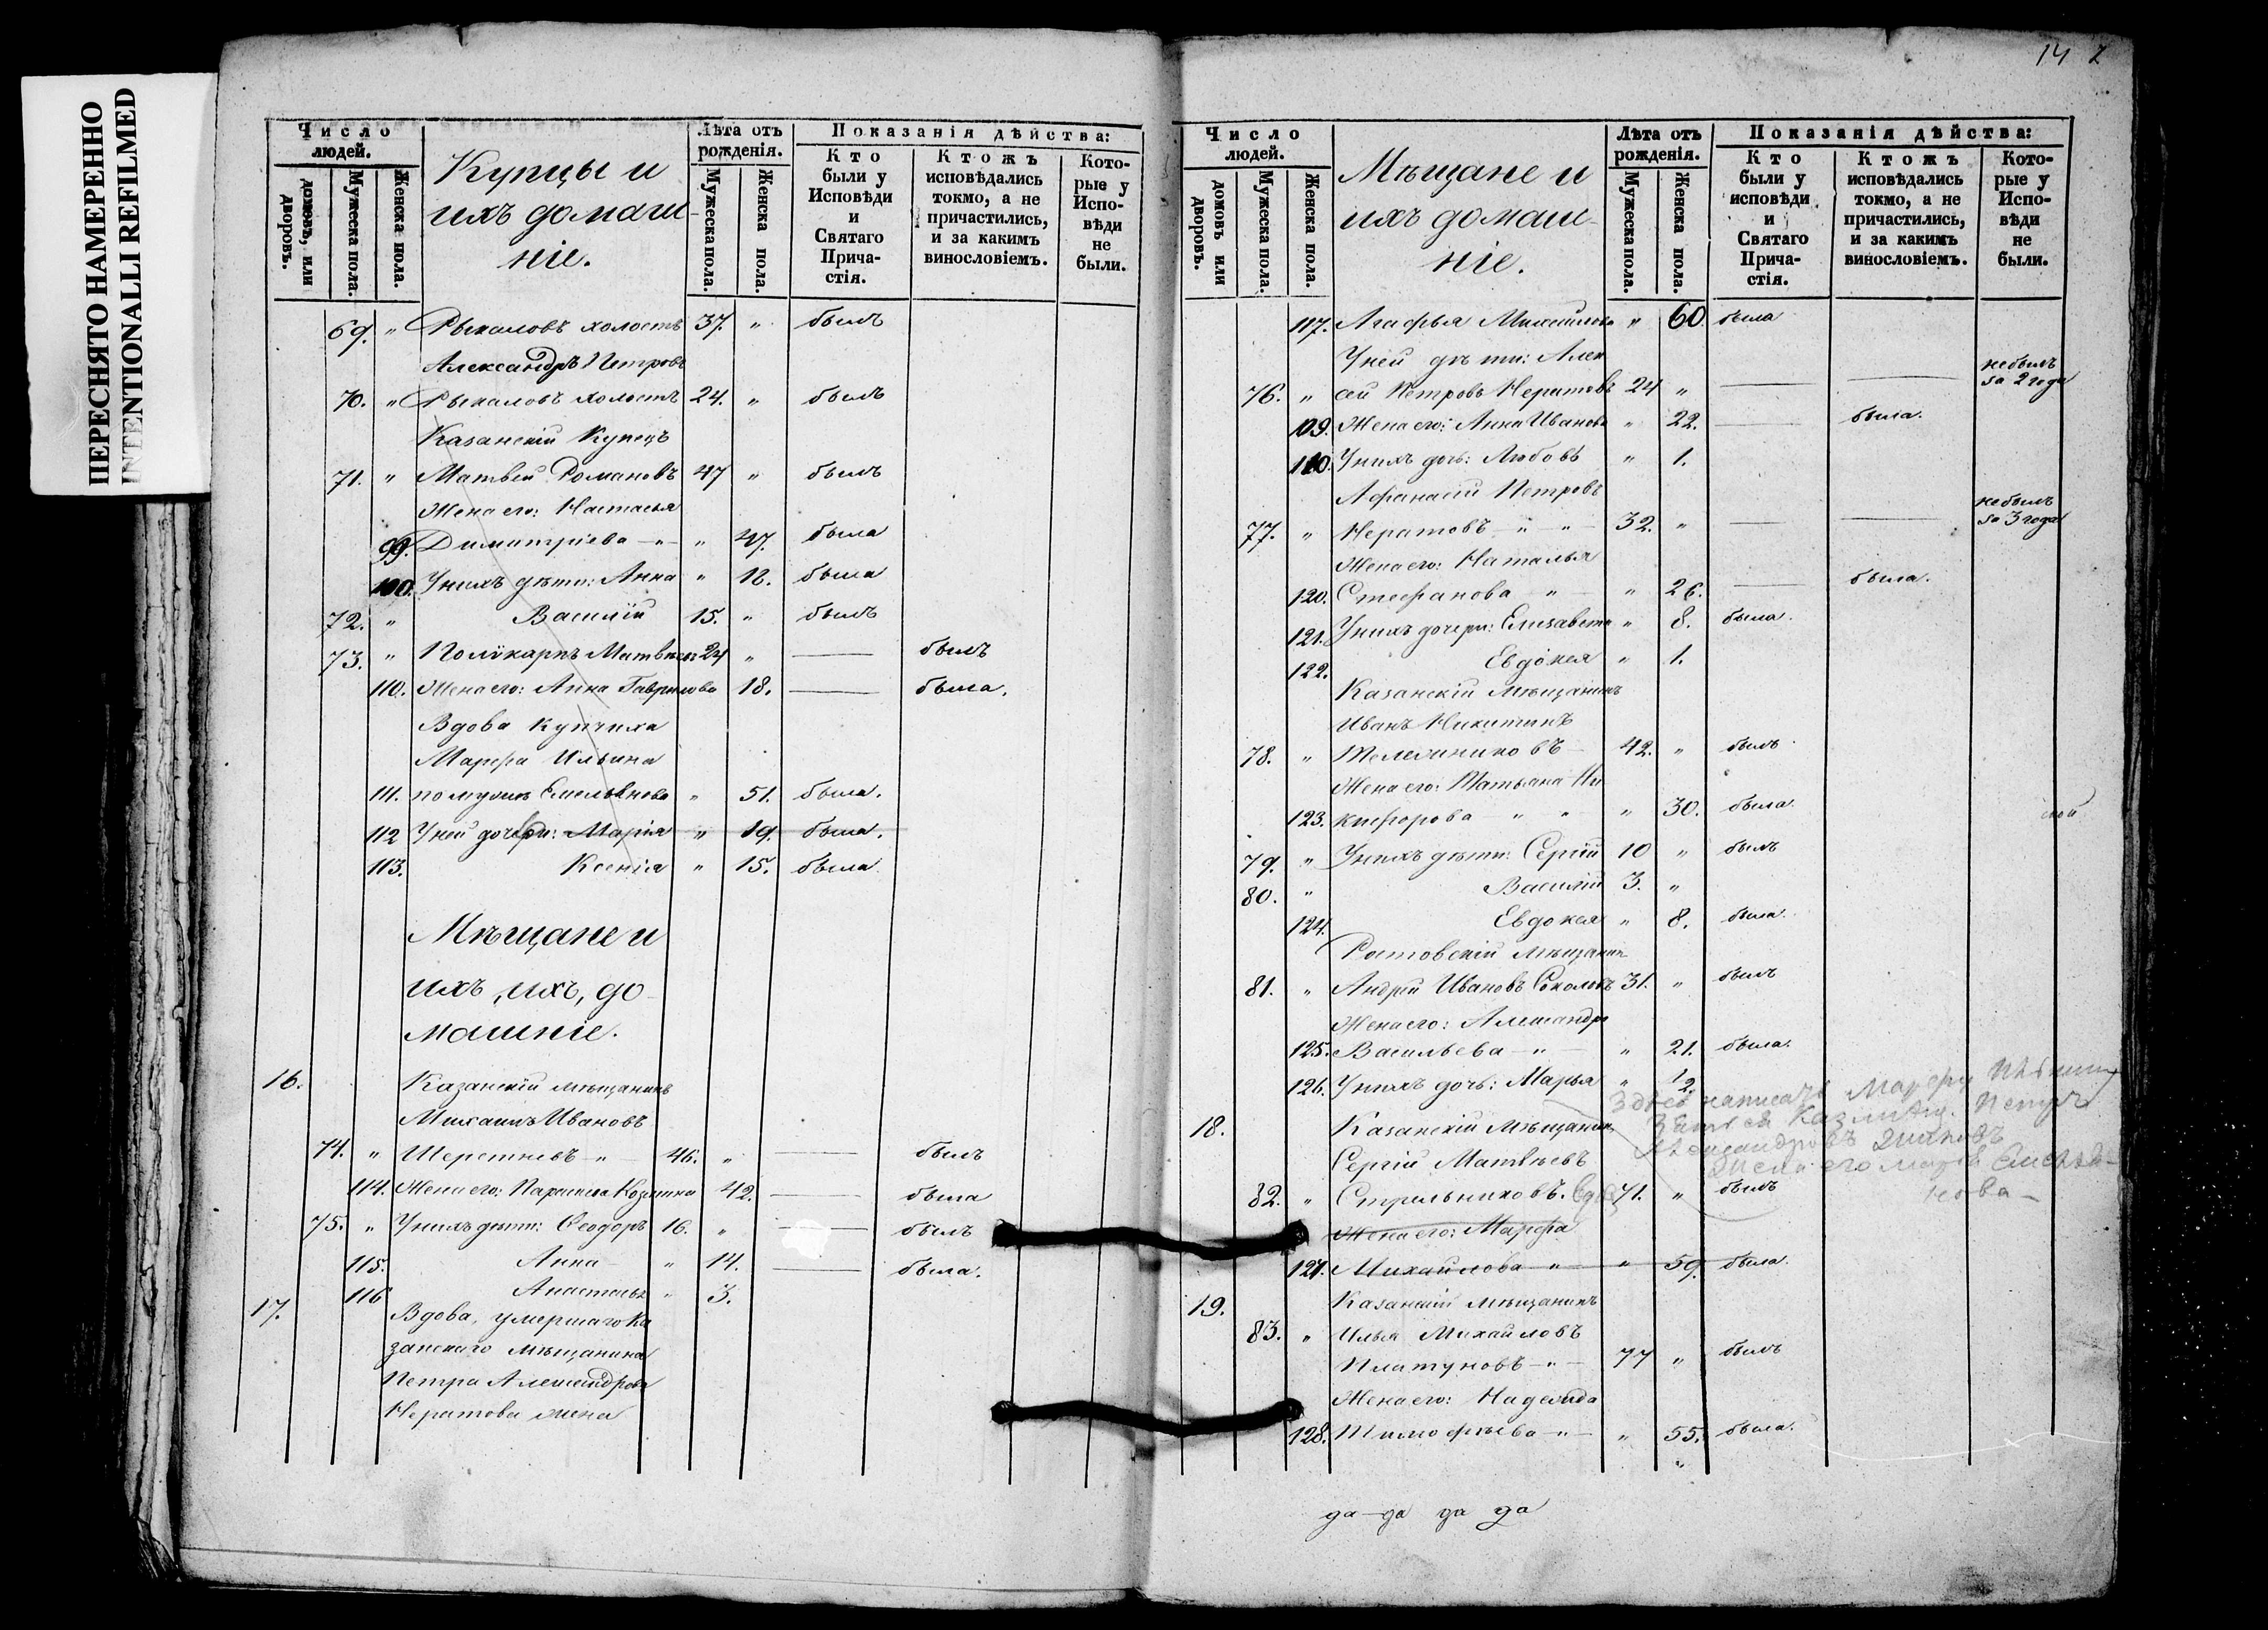 ПЕРЕСНЯТО НАМЕРЕННО
INTENTIONALLI REFILMED
Число людей.
домовъ, или дворовъ.
Мужеска пола.
Женска пола.
Купцы и
ихъ домаш-
ніе.
Лѣта отъ рожденія.
Мужеска пола.
Женска пола.
Показанія дѣйства:
Кто были у Исповѣди и Святаго Прича-стія.
Ктожъ исповѣдались токмо, а не причастились, и за какимъ винословіемъ.
Кото-рые у Испо-вѣди не были.
69. " Рыкаловъ холостъ 37. " былъ
Александръ Петровъ
70. " Рыкаловъ холостъ 24. " былъ
Казанскій Купецъ
71. " Матвей Романовъ 47 " былъ
Жена его: Настасья
99. Димитріева " " 47. была
100. У нихъ дѣти: Анна " 12. была
72. " Василій 15. " былъ
73. " Поликарпъ Матвѣевъ 24 " — былъ
110. Жена его: Анна Гаврилова 18. — была.
Вдова купчиха
Марфа Ильина
111. по мужѣ Емельянова " 51. была.
112 У ней дочери: Марія " 19. была.
113. Ксенія " 15. была
Мѣщане и
ихъ, ихъ, до-
машніе.
16. Казанскій мѣщанинъ
Михаилъ Ивановъ
74. " Шеретневъ " 46. " — былъ
114. Жена его: Козмина 42. — была
75. " У нихъ дѣти: Ѳеодоръ 16. " — былъ
115. Анна " 14. — была.
116 Анастасья " 3.
17. Вдова, умершаго Ка
занскаго мѣщанина
Петра Александрова
Нератова жена
14 2
Число людей.
домовъ или дворовъ.
Мужеска пола.
Женска пола.
Мѣщане и
ихъ домаш-
ніе.
Лѣта отъ рожденія.
Мужеска пола.
Женска пола.
Показанія дѣйства:
Кто были у исповѣди и Святаго Прича-стія.
Ктожъ исповѣдались токмо, а не причастились, и за какимъ винословіемъ.
Кото-рые у Испо-вѣди не были.
117. Агафья Михайлова " 60. была
У ней дѣти: Алек
76. " сѣй Петровъ Нератовъ 24 " — — небылъ за 2 года
109. Жена его: Анна Иванова " 22. — была.
110. У нихъ дочь: Любовь " 1.
Афанасій Петровъ
77. " Нератовъ " " 32. " — — небылъ за 3 года
Жена его: Наталья
120. Стефанова " " 26. — была.
121. У нихъ дочери: Елизавета " 8. была.
122. Евдокея " 1.
Казанскій мѣщанинъ
Иванъ Никитинъ
78. " 42. " былъ
Жена его: Татьяна Ни
123. кифорова " " " 30. была.
79. " У нихъ дѣти: Сергій 10 " былъ
80. " Василій 3. "
124. Евдокея " 8. была.
Ростовскій мѣщанинъ
81. " Андрей Ивановъ Соколовъ 31. " былъ
Жена его: Александра
125. Васильева " " 21. была.
126. У нихъ дочь: Марья " 1/2.
Здѣсь написать Марфу
Казан. Петръ
Александровъ
Жена его Марія Емелья-
нова
18. Казанскій Мѣщанинъ
Сергій Матвѣевъ
82. " Стрельниковъ. вдовъ 71. " былъ
Жена его: Марфа
127. Михайлова " " 59. была.
19. Казанскій мѣщанинъ
83. " Илья Михайловъ
Платуновъ " 77 " былъ
Жена его: Надежда
128. Тимофѣева " " 55. была.
"
да-да да да